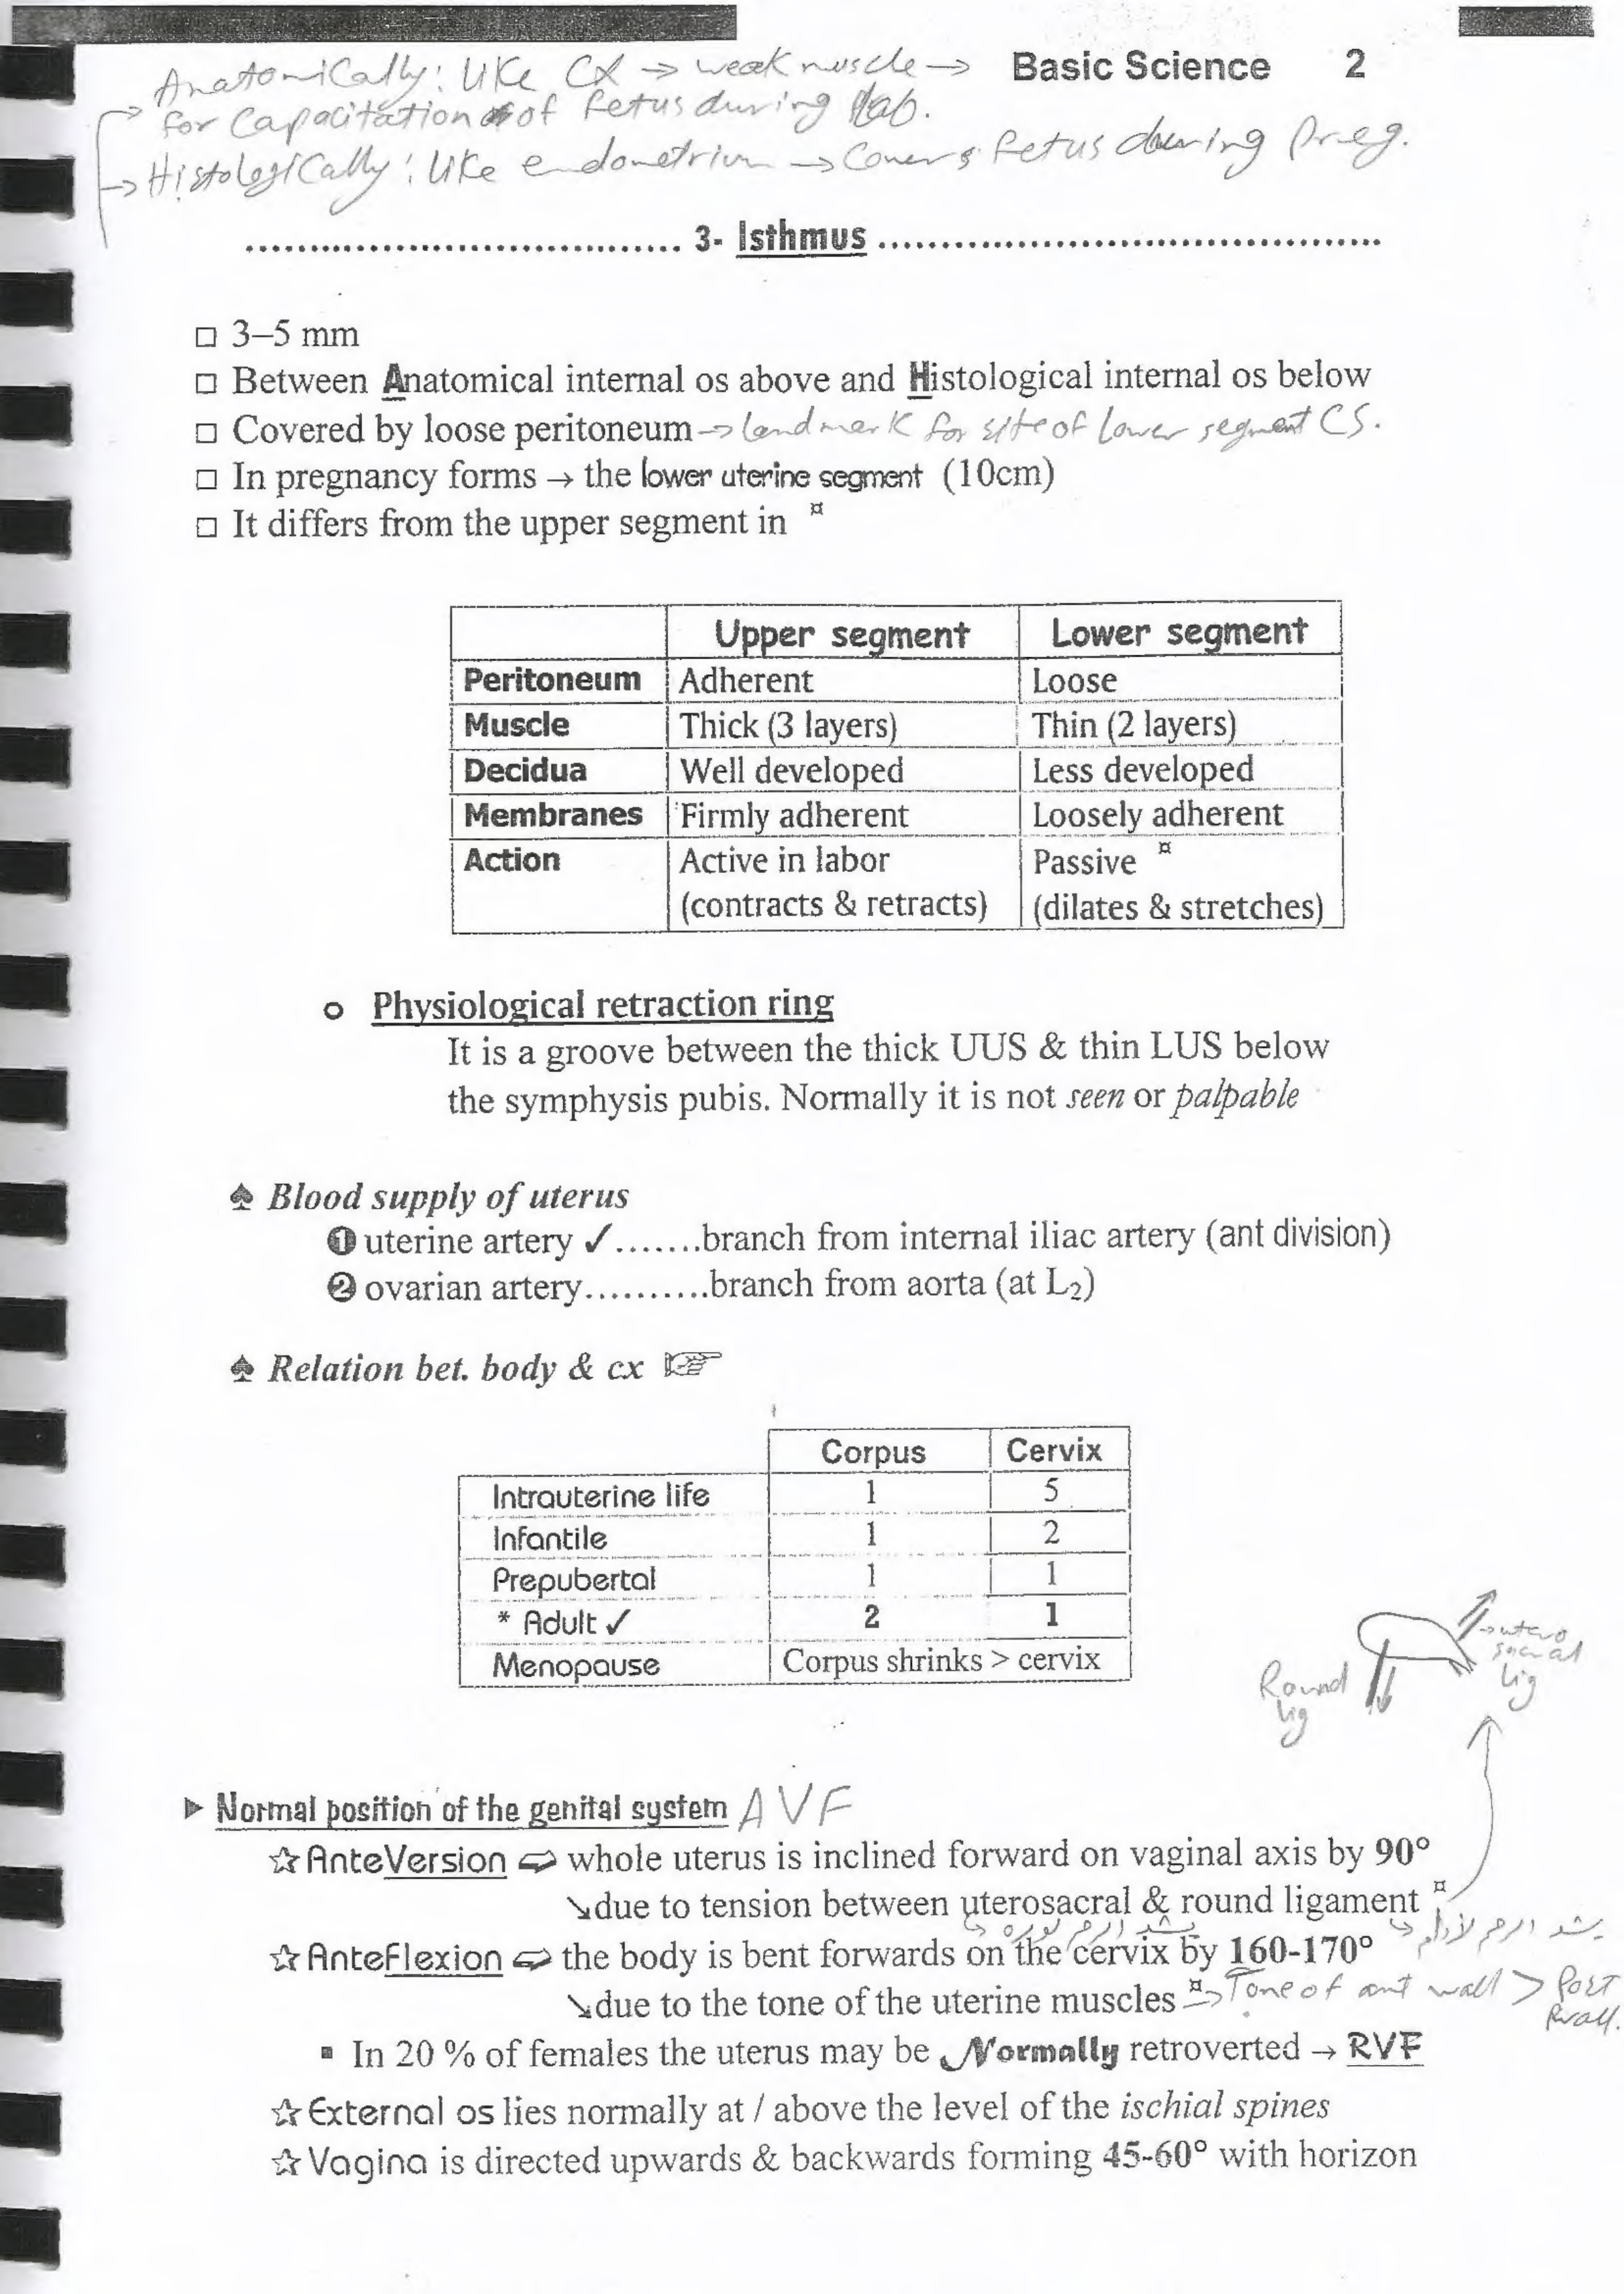 Basic Science 2
Anatomically: like CX → weak muscle →
for Capacitation of fetus during lab.
→ Histologically: like endometrium → Covers fetus during Preg.
3- Isthmus
□ 3–5 mm
□ Between Anatomical internal os above and Histological internal os below
□ Covered by loose peritoneum → landmark for site of lower segment CS.
□ In pregnancy forms → the lower uterine segment (10cm)
□ It differs from the upper segment in ¤
Upper segment Lower segment
Peritoneum Adherent Loose
Muscle Thick (3 layers) Thin (2 layers)
Decidua Well developed Less developed
Membranes Firmly adherent Loosely adherent
Action Active in labor Passive ¤
(contracts & retracts) (dilates & stretches)
o Physiological retraction ring
It is a groove between the thick UUS & thin LUS below
the symphysis pubis. Normally it is not seen or palpable
♠ Blood supply of uterus
❶ uterine artery ✓.......branch from internal iliac artery (ant division)
❷ ovarian artery..........branch from aorta (at L₂)
♠ Relation bet. body & cx ☞
Corpus Cervix
Intrauterine life 1 5
Infantile 1 2
Prepubertal 1 1
* Adult ✓ 2 1
Menopause Corpus shrinks > cervix
→ utero
sacral
lig
Round
lig
► Normal position of the genital system AVF
☆ AnteVersion ⇨ whole uterus is inclined forward on vaginal axis by 90°
↘due to tension between uterosacral & round ligament ¤
يشد الرحم لورا
يشد الرحم لأدام
☆ AnteFlexion ⇨ the body is bent forwards on the cervix by 160-170°
↘due to the tone of the uterine muscles ¤ → Tone of ant wall > Post
wall.
▪ In 20 % of females the uterus may be Normally retroverted → RVF
☆ External os lies normally at / above the level of the ischial spines
☆ Vagina is directed upwards & backwards forming 45-60° with horizon